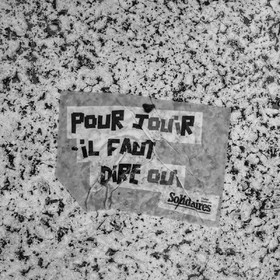 POUR JOUIR
iL FAUT
DIRE OUI
Solidaires